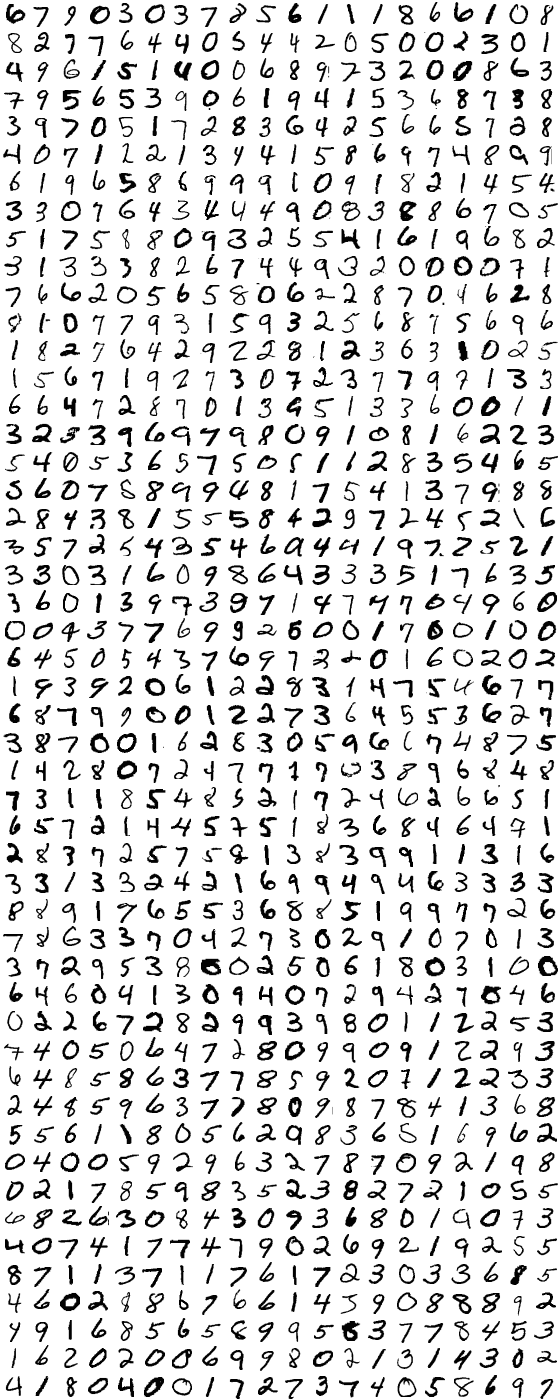 6 7 9 0 3 0 3 7 8 5 6 1 1 1 8 6 6 1 0 8
8 2 7 7 6 4 4 0 5 4 4 2 0 5 0 0 2 3 0 1
4 9 6 1 5 1 4 0 0 6 8 9 7 3 2 0 0 8 6 3
7 9 5 6 5 3 9 0 6 1 9 4 1 5 3 6 8 7 3 8
3 9 7 0 5 1 7 2 8 3 6 4 2 5 6 6 5 7 2 8
4 0 7 1 2 2 1 3 4 4 1 5 8 6 9 7 4 8 9 9
6 1 9 6 5 8 6 9 9 9 1 0 9 1 8 2 1 4 5 4
3 3 0 7 6 4 3 4 4 4 9 0 8 3 8 8 6 7 0 5
5 1 7 5 8 8 0 9 3 2 5 5 4 1 6 1 9 6 8 2
3 1 3 3 3 8 2 6 7 4 4 9 3 2 0 0 0 0 7 1
7 6 6 2 0 5 6 5 8 0 6 2 2 8 7 0 4 6 2 8
8 1 0 7 7 9 3 1 5 9 3 2 5 6 8 7 5 6 9 6
1 8 2 7 6 4 2 9 2 2 8 1 2 3 6 3 1 0 2 5
1 5 6 7 1 9 2 7 3 0 7 2 3 7 7 9 7 1 3 3
6 6 4 7 2 8 7 0 1 3 9 5 1 3 3 6 0 0 1 1
3 2 5 3 9 6 9 7 9 8 0 9 1 0 8 1 6 2 2 3
5 4 0 5 3 6 5 7 5 0 5 1 1 2 8 3 5 4 6 5
5 6 0 7 5 8 9 9 4 8 1 7 5 4 1 3 7 9 8 8
2 8 4 3 8 1 5 5 5 8 4 2 9 7 2 4 5 2 1 6
3 5 7 2 5 4 3 5 4 6 9 4 4 1 9 7 2 5 2 1
3 3 0 3 1 6 0 9 8 6 4 3 3 3 5 1 7 6 3 5
3 6 0 1 3 9 7 3 9 7 1 4 7 7 7 0 4 9 6 0
0 0 4 3 7 7 6 9 9 2 6 0 0 1 7 0 0 1 0 0
6 4 5 0 5 4 3 7 6 9 7 2 2 0 1 6 0 2 0 2
1 9 3 9 2 0 6 1 2 2 8 3 1 4 7 5 4 6 7 7
6 8 7 9 9 0 0 1 2 2 7 3 6 4 5 5 3 6 2 7
3 8 7 0 0 1 6 2 8 3 0 5 9 6 6 7 4 8 7 5
1 4 2 8 0 7 2 4 7 7 1 7 0 3 8 9 6 8 4 8
7 3 1 1 8 5 4 8 5 2 1 7 2 4 6 2 6 6 5 1
6 5 7 2 1 4 4 5 7 5 1 8 3 6 8 4 6 4 7 1
2 8 3 7 2 5 7 5 8 1 3 8 3 9 9 1 1 3 1 6
3 3 1 3 3 2 4 2 1 6 9 9 4 9 4 6 3 3 3 3
8 8 9 1 7 6 5 5 3 6 8 8 5 1 9 9 7 7 2 6
7 8 6 3 3 7 0 4 2 7 3 0 2 9 1 0 7 0 1 3
3 7 2 9 5 3 8 0 0 2 5 0 6 1 8 0 3 1 0 0
6 4 6 0 4 1 3 0 9 4 0 7 2 9 4 2 7 0 4 6
0 2 2 6 7 2 8 2 9 9 3 9 8 0 1 1 2 2 5 3
7 4 0 5 0 6 4 7 2 8 0 9 9 0 9 1 2 2 9 3
6 4 8 5 8 6 3 7 7 8 5 9 2 0 7 1 2 2 3 3
2 4 8 5 9 6 3 7 7 8 0 9 8 7 8 4 1 3 6 8
5 5 6 1 1 8 0 5 6 2 9 8 3 6 5 1 6 9 6 2
0 4 0 0 5 9 2 9 6 3 2 7 8 7 0 9 2 1 9 8
0 2 1 7 8 5 9 8 3 5 2 3 8 2 7 2 1 0 5 5
6 8 2 6 3 0 8 4 3 0 9 3 6 8 0 1 9 0 7 3
4 0 7 4 1 7 7 4 7 9 0 2 6 9 2 1 9 2 5 5
8 7 1 1 3 7 1 1 7 6 1 7 2 3 0 3 3 6 8 5
4 6 0 2 8 8 6 7 6 6 1 4 5 9 0 8 8 8 9 2
4 9 1 6 8 5 6 5 8 9 9 5 8 3 7 7 8 4 5 3
1 6 2 0 2 0 0 6 9 9 8 0 2 1 3 1 4 3 0 2
4 1 8 0 4 0 0 1 7 2 7 3 7 4 0 5 8 6 9 7